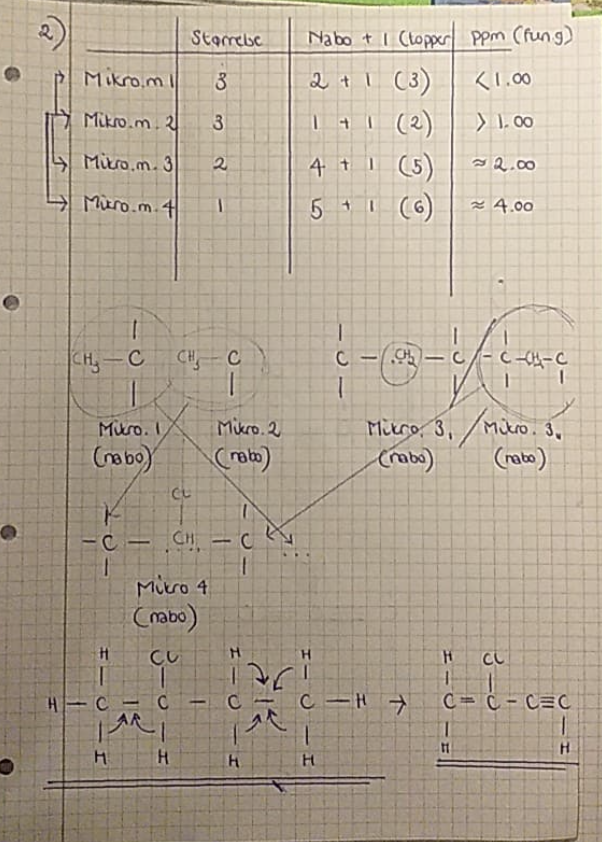 2)
Størrelse Nabo + 1 (topper) ppm (fung)
Mikro.m 1 3 2 + 1 (3) < 1.00
Mikro.m. 2 3 1 + 1 (2) > 1.00
Mikro.m. 3 2 4 + 1 (5) ≈ 2.00
Mikro.m. 4 1 5 + 1 (6) ≈ 4.00
CH₃ — C CH₃ — C C — CH₂ — C — C — CH₂ — C
Mikro. 1 Mikro. 2 Mikro. 3, / Mikro. 3.
(nabo) (nabo) (nabo) (nabo)
Cl
— C — CH. — C ...
Mikro 4
(nabo)
H Cl H H H Cl
H — C — C — C — C — H → C = C - C ≡ C
H H H H H H